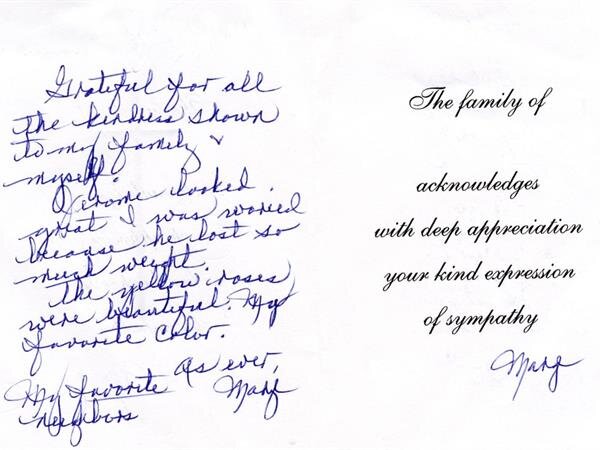 Grateful for all
the kindness shown
to my family &
myself.
Jerome looked
great I was woried
because he lost so
much weight.
The yellow roses
were beautiful. My
favorite color.
As ever,
My favorite Marg
neighbors
The family of
acknowledges
with deep appreciation
your kind expression
of sympathy
Marg